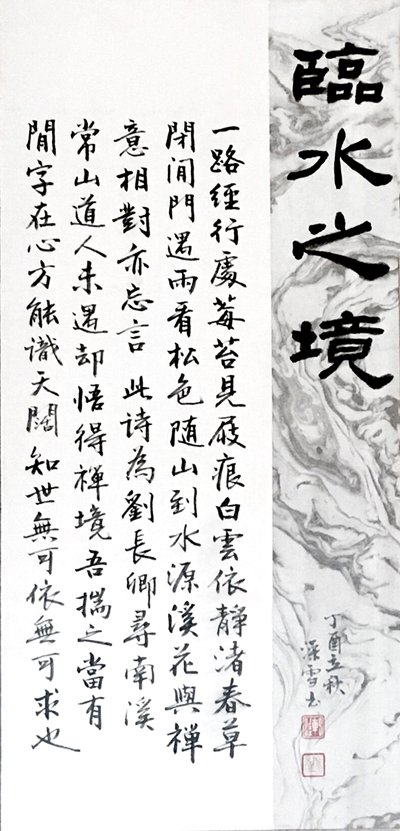 臨水之境
丁酉立秋
深雪书
一路經行處莓苔見屐痕白雲依靜渚春草
閉閒門遇雨看松色隨山到水源溪花與禪
意相對亦忘言 此诗為劉長卿尋南溪
常山道人未遇却悟得禅境吾揣之當有
閒字在心方能識天闊知世無可依無可求也